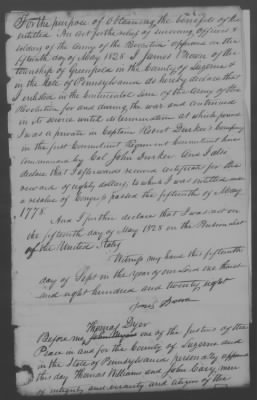 For the purpose of obtaining the benefits of the
entitled An act for the relief of surviving officers &
soldiers of the Army of the Revolution approved on the
fifteenth day of May 1828 I James of the
township of Greenfield in the County of Luzerne
in the State of Pennsylvania do hereby declare that
I enlisted in the Continental line of the Army of the
Revolution for and during the war and continued
in its service until its termination at which period
I was a private in Captain Robert Company
in the first Connecticut Regiment Connecticut line
commanded by Col John And I also
declare that I afterwards received certificate for the
reward of eighty dollars, to which I was entitled under
a resolve of Congress passed the fifteenth of May
1778
And I further declare that I was not on
the fifteenth day of May 1828 on the Pension list
of the United States
Witness my hand this fifteenth
day of Sept in the year of our Lord one thous
and eight hundred and twenty eight
James
Thomas Dyer
Before me one of the Justices of the
Peace in and for the County of Luzerne and
in the State of Pennsylvania personally appeared
this day Thomas Williams and John Cary, men
of integrity and veracity and citizens of the